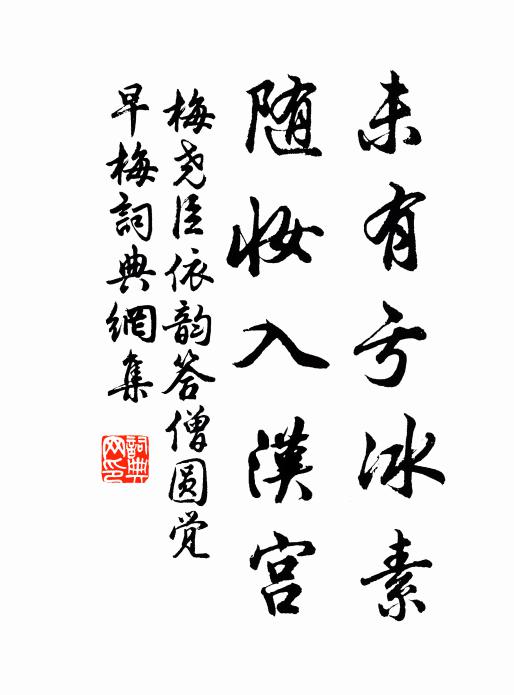 未有亏冰素
随妆入汉宫
梅尧臣依韵答僧圆觉
早梅詞典網集
詞典网印